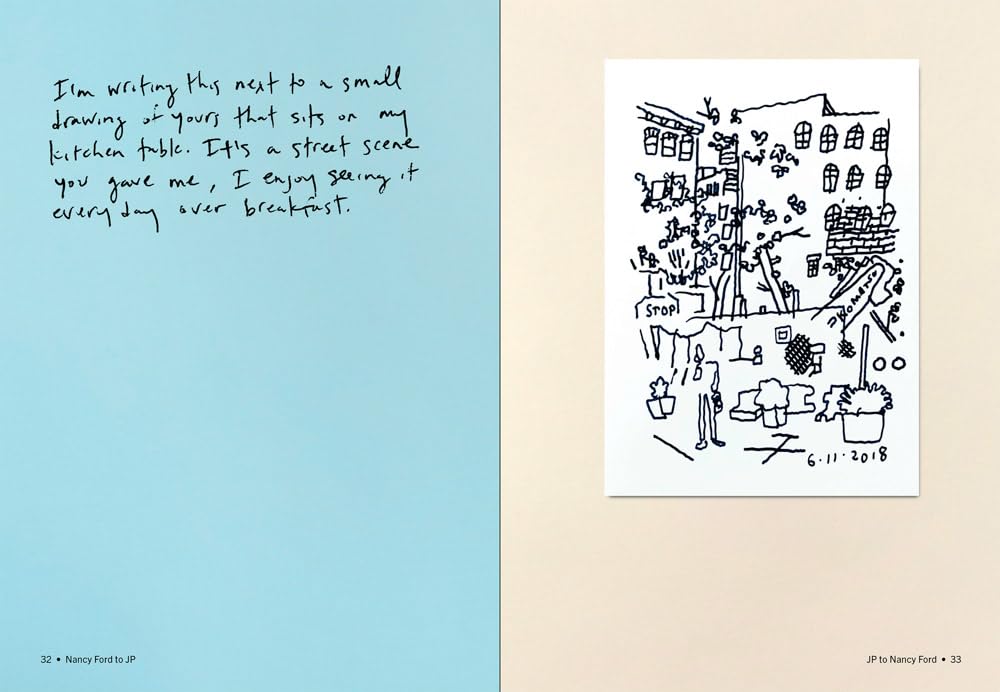 I'm writing this next to a small
drawing of yours that sits on my
kitchen table. It's a street scene
you gave me, I enjoy seeing it
every day over breakfast.
KOMATSU
STOP
6·11·2018
32 • Nancy Ford to JP
JP to Nancy Ford • 33